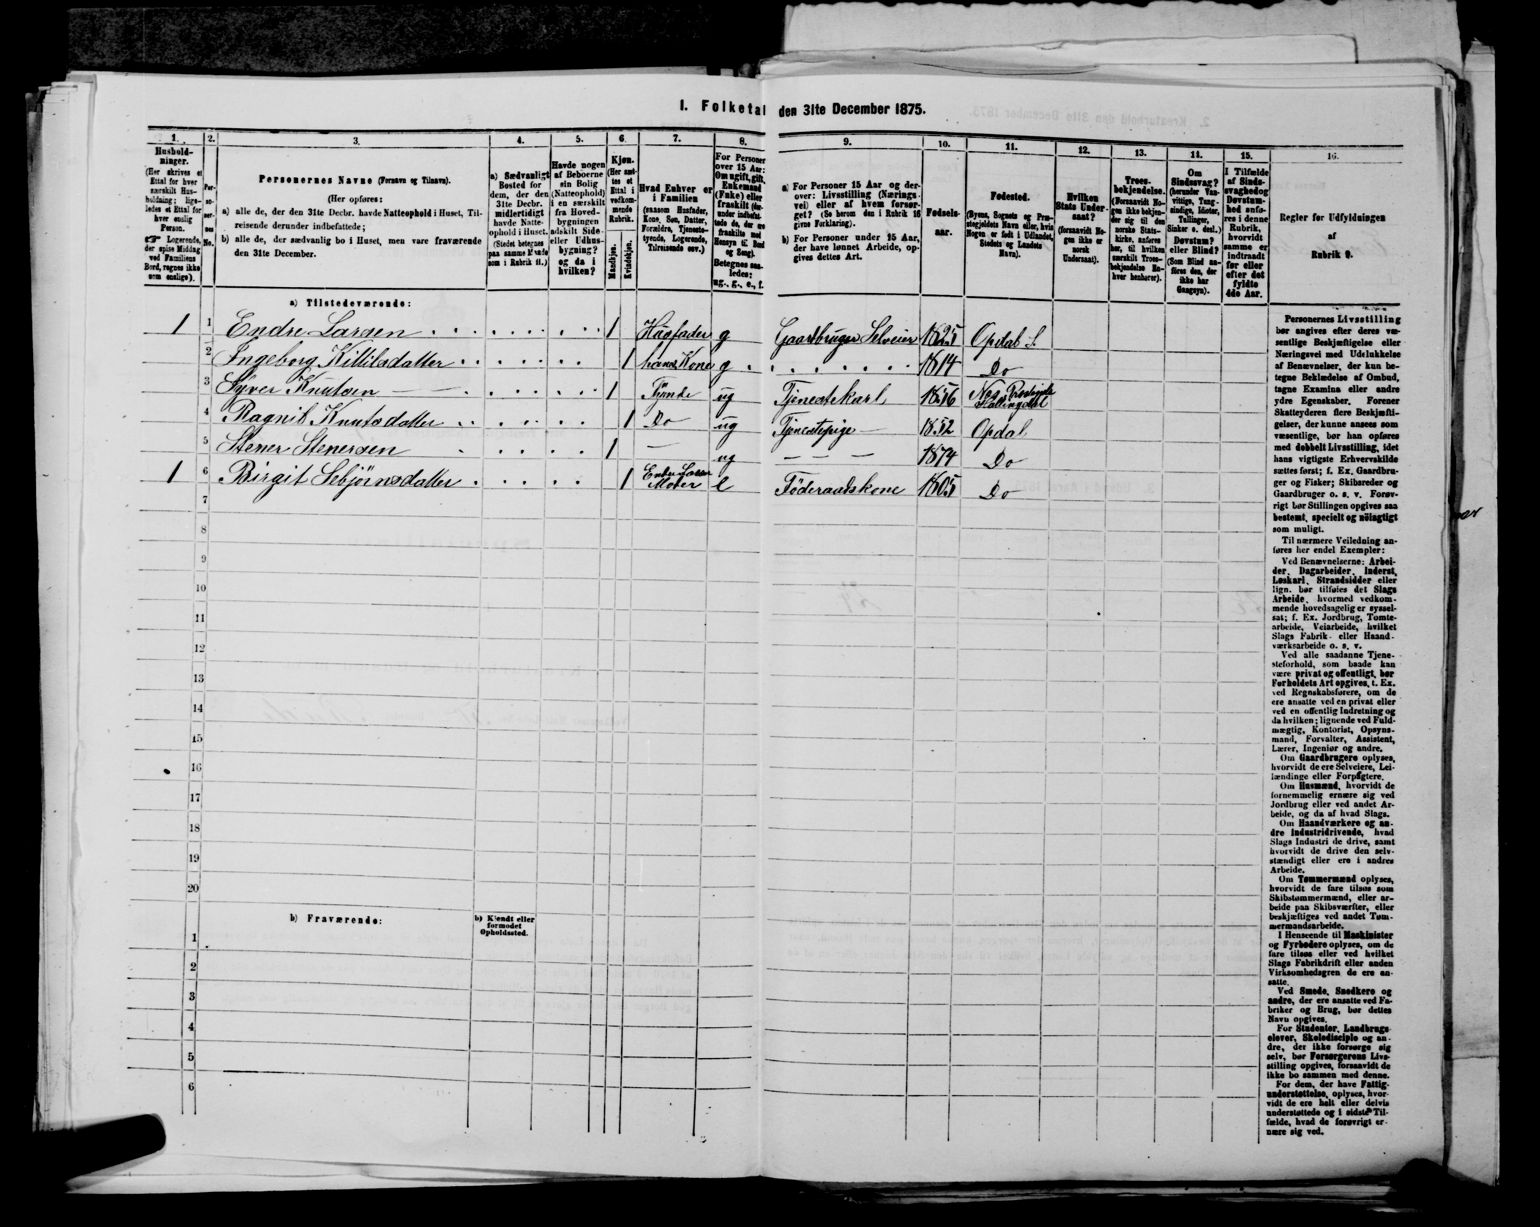 I. Folketal den 31te December 1875.
1. 2. 3. 4. 5. 6. 7. 8. 9. 10. 11. 12. 13. 14. 15. 16.
Hushold-
ninger.
(Her skrives et
Ettal for hver
særskilt Hus-
holdning; lige-
ledes et Ettal for
hver enslig
Person.
☞ Logerende,
der spise Middag
ved Familiens
Bord, regnes ikke
som enslige).
Per-
so-
ner-
nes
No.
Personernes Navne (Fornavn og Tilnavn).
(Her opføres:
a) alle de, der den 31te Decbr. havde Natteophold i Huset, Til-
reisende derunder indbefattede;
b) alle de, der sædvanlig bo i Huset, men vare fraværende
den 31te December.
a) Sædvanligt
Bosted for
dem, der den
31te Decbr.
midlertidigt
havde Natte-
ophold i Huset.
(Stedet betegnes
paa samme Maade
som i Rubrik 11.)
Havde nogen
af Beboerne
sin Bolig
(Natteophold)
i en særskilt
fra Hoved-
bygningen
adskilt Side-
eller Udhus-
bygning?
og da i
hvilken?
Kjøn.
(Her sæt-
tes et
Ettal i
vedkom-
mende
Rubrik.
Mandkjøn.
Kvindekjøn.
Hvad Enhver er
i Familien
(saasom Husfader,
Kone, Søn, Datter,
Forældre, Tjeneste-
tyende, Logerende,
Tilreisende osv.)
For Personer
over 15 Aar:
Om ugift, gift,
Enkemand
(Enke) eller
fraskilt (der-
under indbefat-
tede de, der ere
fraskilte med
Hensyn til Bord
og Seng).
Betegnes saa-
ledes:
ug., g., e., f.
a) For Personer 15 Aar og der-
over: Livsstilling (Nærings-
vei) eller af hvem forsør-
get? (Se herom den i Rubrik 16
givne Forklaring).
b) For Personer under 15 Aar,
der have lønnet Arbeide, op-
gives dettes Art.
Fødsels-
aar.
Fødested.
(Byens, Sognets og Præ-
stegjeldets Navn eller, hvis
Nogen er født i Udlandet,
Stedets og Landets
Navn).
Hvilken
Stats Under-
saat?
(foraavidt No-
gen ikke er
norsk
Undersaat).
Troes-
bekjendelse.
(Forsaavidt No-
gen ikke bekjen-
der sig til den
norske Stats-
kirke, anføres
her, til hvilken
særskilt Troes-
bekjendelse En-
hver henhører).
Om
Sindssvag?
(herunder Van-
vittige, Tung-
sindige, Idioter,
Tullinger,
Sinker o. desl.)
Døvstum?
eller Blind?
(Som Blind an-
føres den, der
ikke har
Gangsyn).
I Tilfælde
af Sinds-
svaghed og
Døvstum-
hed anfø-
res i denne
Rubrik,
hvorvidt
samme er
indtraadt
før eller
efter det
fyldte
4de Aar.
Regler for Udfyldningen
af
Rubrik 9.
a) Tilstedeværende:
1 1 Endre Larsen 1 Husfader g Gaardbruger Selveier 1825 Opdal S.
2 Ingeborg Killilsdatter 1 hans Kone g 1814 Do
3 Syver Knutsen 1 Tjende ug Tjenestekarl 1856 Nes Prestegjeld Hallingdal
4 Ragnil Knutsdatter 1 Do ug Tjenestepige 1852 Opdal
5 Stener Stenersen 1 — ug — — — 1874 Do
1 6 Birgit Sebjörnsdatter 1 Endre Larsen Moder e Föderaadskone 1805 Do
7
8
9
10
11
12
13
14
15
16
17
18
19
20
b) Fraværende:
b) Kjendt eller
formodet
Opholdssted.
1
2
3
4
5
6
Personernes Livsstilling
bør angives efter deres væ-
sentlige Beskjæftigelse eller
Næringsvei med Udelukkelse
af Benævnelser, der kun be-
tegne Beklædelse af Ombud,
tagne Examina eller andre
ydre Egenskaber. Forener
Skatteyderen flere Beskjæfti-
gelser, der kunne ansees som
væsentlige, bør han opføres
med dobbelt Livsstilling, idet
hans vigtigste Erhvervskilde
sættes først; f. Ex. Gaardbru-
ger og Fisker; Skibsreder og
Gaardbruger o. s. v. Forøv-
rigt bør Stillingen opgives saa
bestemt, specielt og nöiagtigt
som muligt.
Til nærmere Veiledning an-
føres her endel Exempler:
Ved Benævnelserne: Arbei-
der, Dagarbeider, Inderst,
Løskarl, Strandsidder eller
lign. bør tilføies det Slags
Arbeide, hvormed vedkom-
mende hovedsagelig er syssel-
sat; f. Ex. Jordbrug, Tomte-
arbeide, Veiarbeide, hvilket
Slags Fabrik- eller Haand-
værksarbeide o. s. v.
Ved alle saadanne Tjene-
steforhold, som baade kan
være privat og offentligt, bør
Forholdets Art opgives, t. Ex.
ved Regnskabsførere, om de
ere ansatte ved en privat eller
ved en offentlig Indretning og
da hvilken; lignende ved Fuld-
mægtig, Kontorist, Opsyns-
mand, Forvalter, Assistent,
Lærer, Ingeniør og andre.
Om Gaardbrugere oplyses,
hvorvidt de ere Selveiere, Lei-
lændinge eller Forpagtere.
Om Husmænd, hvorvidt de
fornemmelig ernære sig ved
Jordbrug eller ved andet Ar-
beide, og da af hvad Slags.
Om Haandværkere og an-
dre Industridrivende, hvad
Slags Industri de drive, samt
hvorvidt de drive den selv-
stændigt eller ere i andres
Arbeide.
Om Tømmermænd oplyses,
hvorvidt de fare tilsøs som
Skibstømmermænd, eller ar-
beide paa Skibsværfter, eller
beskjæftiges ved andet Tøm-
mermandsarbeide.
I Henseende til Maskinister
og Fyrbødere oplyses, om de
fare tilsøs eller ved hvilket
Slags Fabrikdrift eller anden
Virksomhedsgren de ere an-
satte.
Ved Smede, Snedkere og
andre, der ere ansatte ved Fa-
briker og Brug, bør dettes
Navn opgives.
For Studenter, Landbrugs-
elever, Skoledisciple og an-
dre, der ikke forsørge sig
selv, bør Forsørgerens Livs-
stilling opgives, forsaavidt de
ikke bo sammen med denne.
For dem, der have Fattig-
understøttelse, oplyses, hvor-
vidt de ere helt eller delvis
understøttede og i sidste Til-
fælde, hvad de forøvrigt er-
nære sig ved.